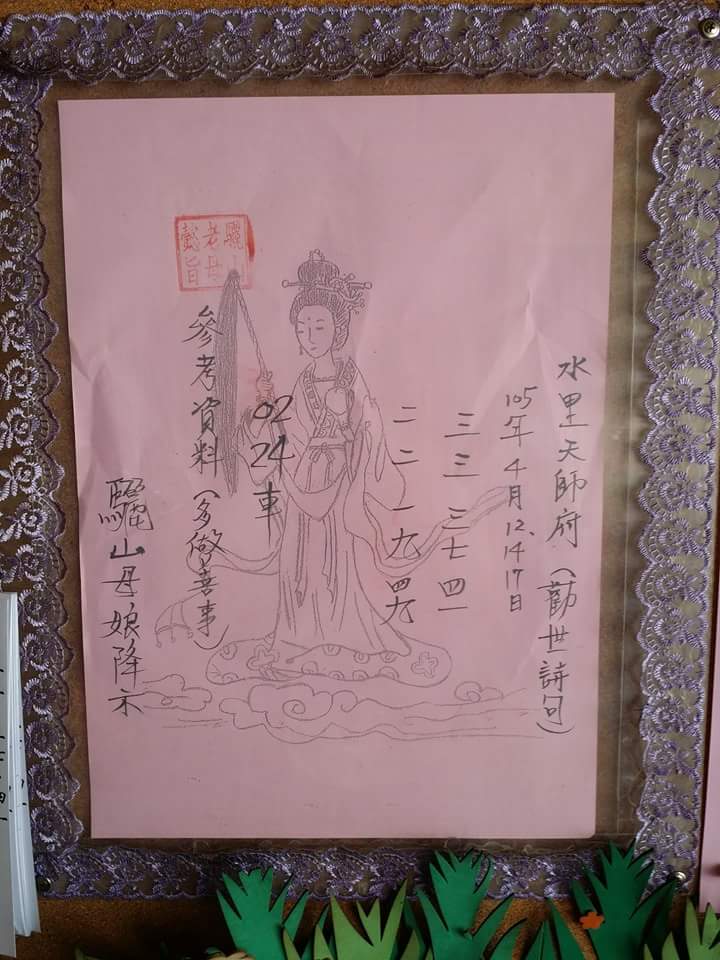 水里天師府(勸世詩句)
105年4月12、14 17日
三三 三七 四一
二二 一九 四九
02 24 車
驪山
老母
懿旨
參考資料(多做善事)
驪山母娘降示